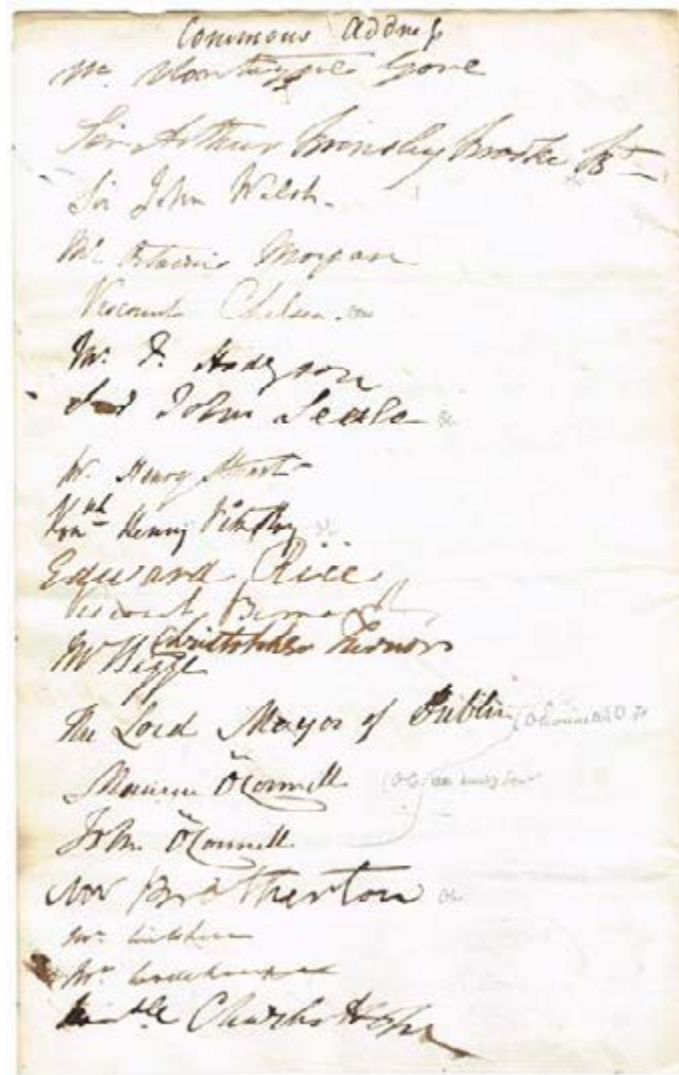 Commons Address
Mr. Montague Gore
Sir Arthur Brinsley Brooke Bt
Sir John Walsh.
Mr Octavius Morgan
Viscount Chelsea.
Mr. F. Hodgson
John Seale
Mr. Henry Stuart
Honble Henry Fitzroy
Edward Rice
Viscount Bernard
Christopher Turnor
Mr Bigge
The Lord Mayor of Dublin
Maurice O'Connell
John O'Connell
Mr Brotherton
Mr.
Mr.
Honble Charles Hope